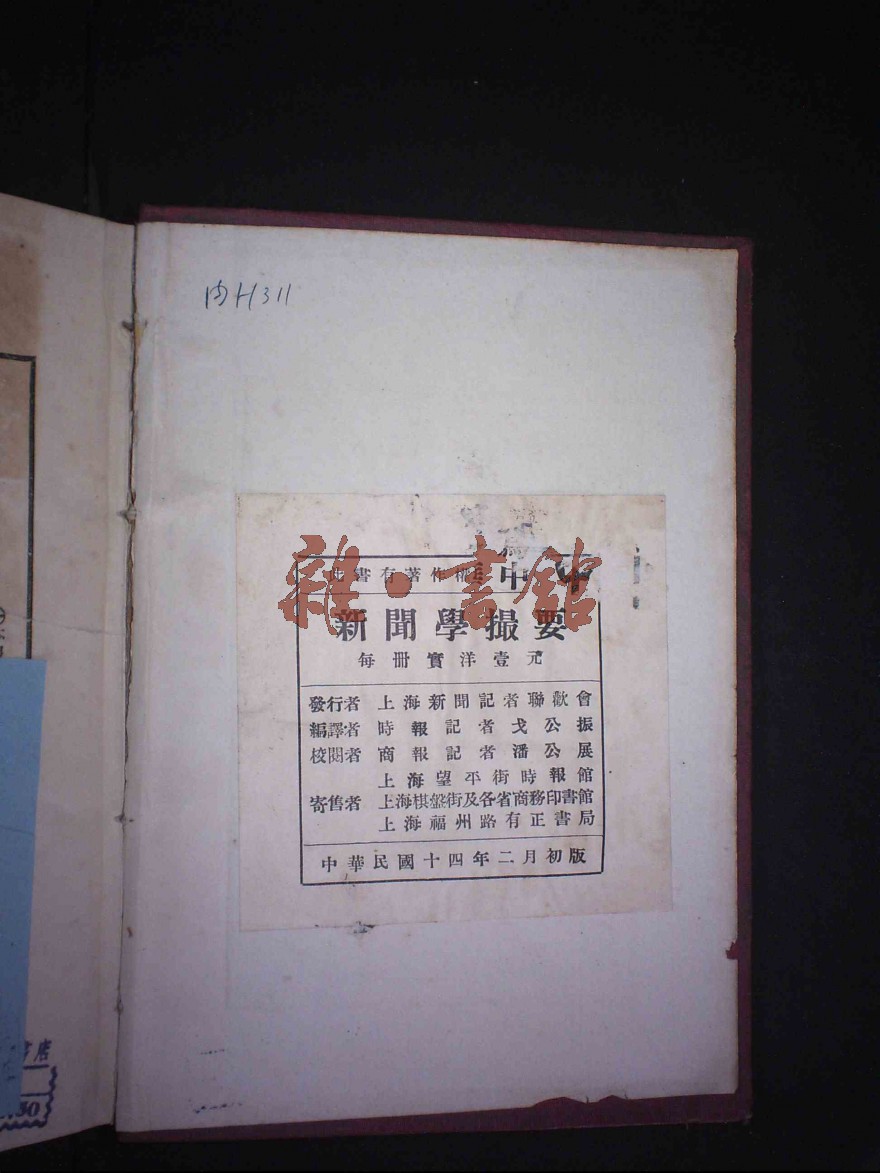 内H311
雜·書館
此書有著作權
中
新聞學撮要
每冊實洋壹元
發行者 上海新聞記者聯歡會
編譯者 時報記者戈公振
校閱者 商報記者潘公展
上海望平街時報館
寄售者 上海棋盤街及各省商務印書館
上海福州路有正書局
中華民國十四年二月初版